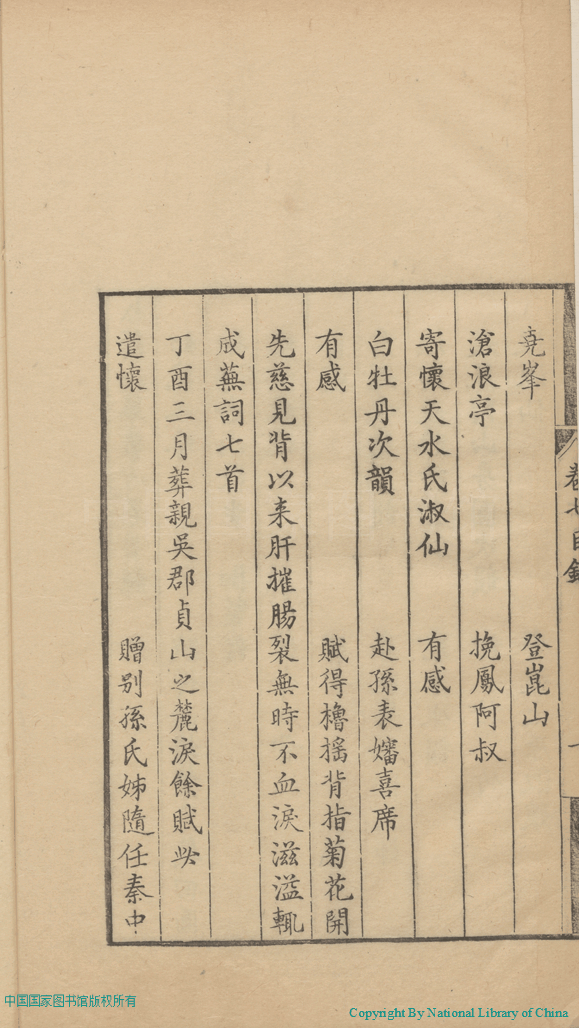 堯峯　登崑山
滄浪亭　挽鳳阿叔
寄懷天水氏淑仙　有感
白牡丹次韻　赴孫表嬸喜席
有感　賦得櫓搖背指菊花開
先慈見背以来肝摧腸裂無時不血淚滋溢輒
成蕪詞七首
丁酉三月葬親吳郡貞山之麓淚餘賦此
遣懷　贈别孫氏姊隨任秦中
卷七目錄
一
中国国家图书馆版权所有
Copyright By National Library of China